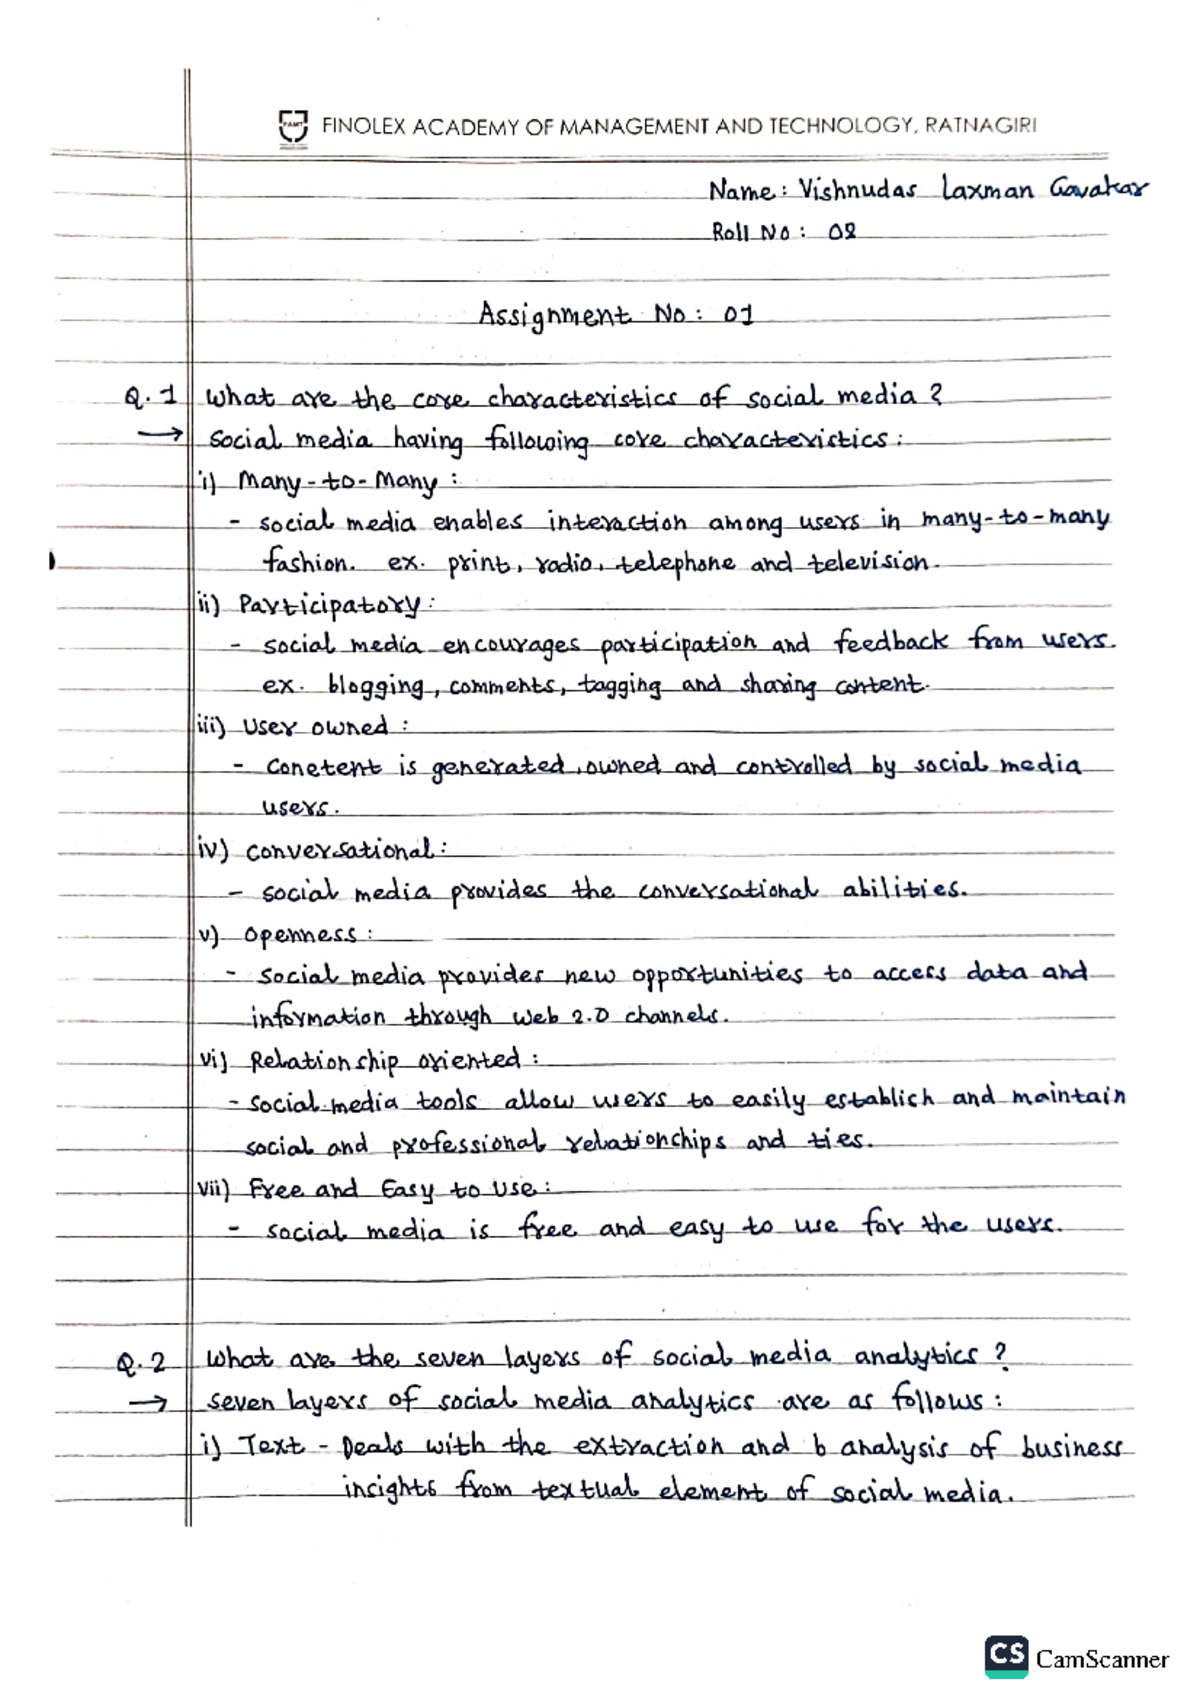 FAMT
FINOLEX ACADEMY OF MANAGEMENT AND TECHNOLOGY, RATNAGIRI
Name: Vishnudas Laxman Gavakar
Roll No: 02
Assignment No: 01
Q.1 What are the core characteristics of social media?
→ social media having following core characteristics:
i) Many-to-Many:
- social media enables interaction among users in many-to-many
fashion. ex. print, radio, telephone and television.
ii) Participatory:
- social media encourages participation and feedback from users.
ex. blogging, comments, tagging and sharing content.
iii) User owned:
- Conetent is generated, owned and controlled by social media
users.
iv) conversational:
- social media provides the conversational abilities.
v) openness:
- social media provides new opportunities to access data and
information through web 2.0 channels.
vi) Relationship oriented:
- social media tools allow users to easily establich and maintain
social and professional relationchips and ties.
vii) Free and Easy to Use:
- social media is free and easy to use for the users.
Q.2 What are the seven layers of social media analytics?
→ seven layers of social media analytics are as follows:
i) Text - Deals with the extraction and b analysis of business
insights from textual element of social media.
CS CamScanner